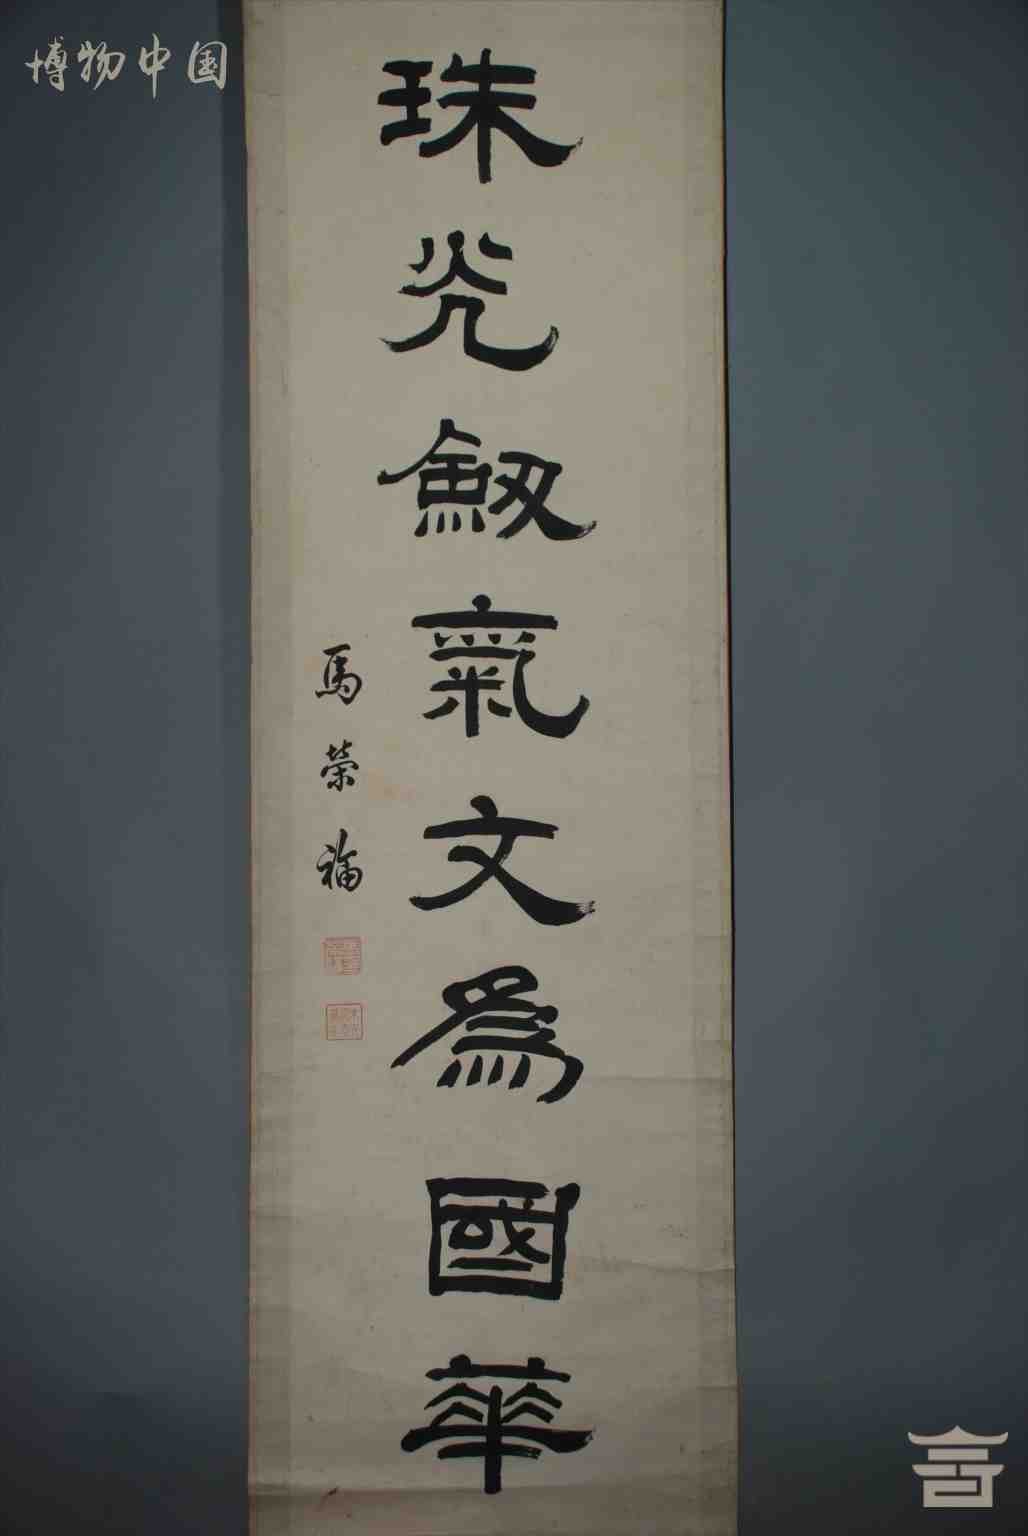 博物中国
珠光劔氣文為國華
馬榮福